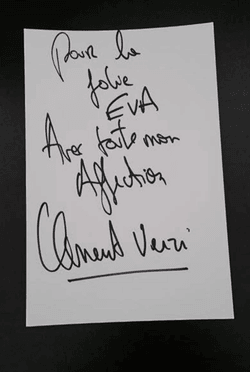 Pour la
jolie
EVA
Avec toute mon
Affection
Clément Verzi